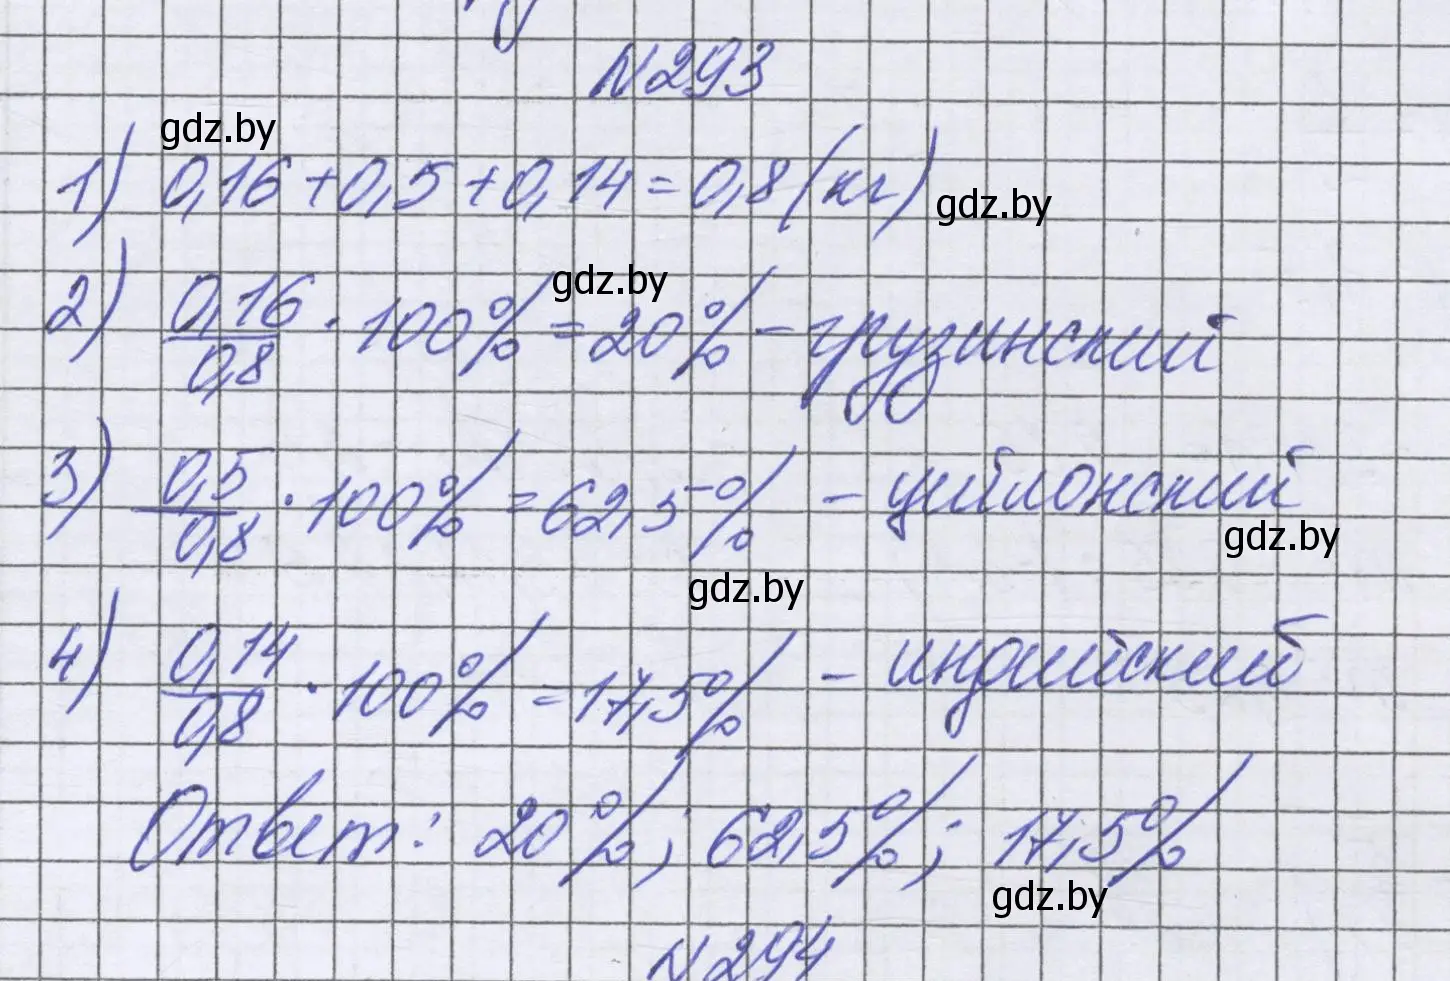 №293
gdz.by
1) 0,16+0,5+0,14=0,8(кг)
gdz.by
gdz.by
2) 0,16/0,8 · 100% = 20% - грузинский
3) 0,5/0,8 · 100% = 62,5% - цейлонский
gdz.by
gdz.by
4) 0,14/0,8 · 100% = 17,5% - индийский
Ответ: 20%; 62,5%; 17,5%
gdz.by
№294